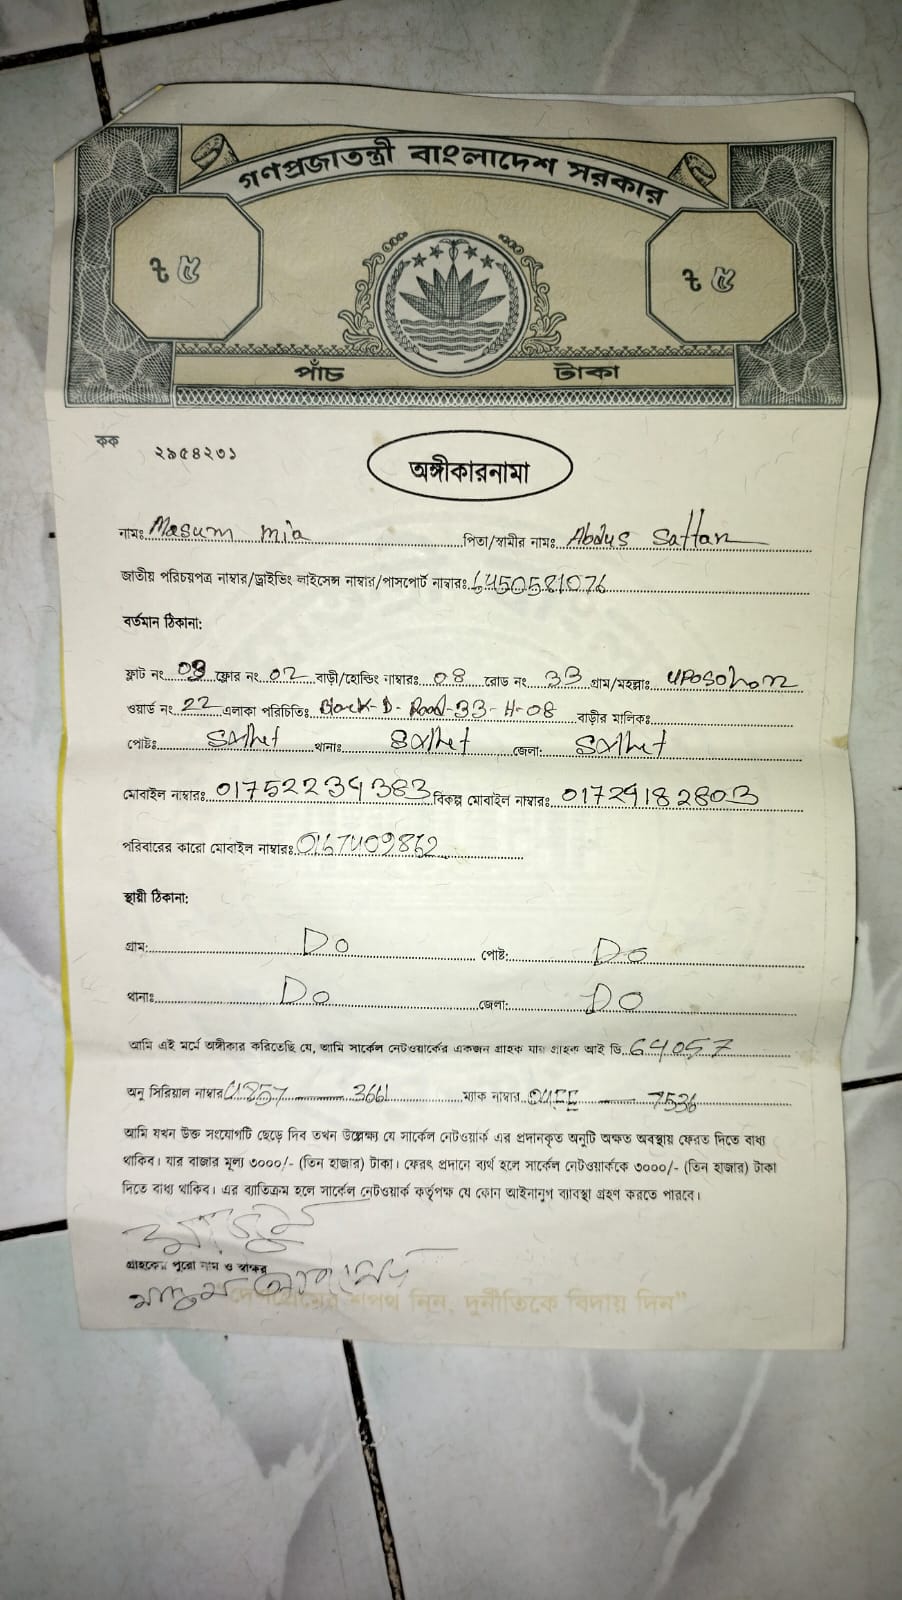 গণপ্রজাতন্ত্রী বাংলাদেশ সরকার
৳ ৫ ৳ ৫
পাঁচ টাকা
কক ২৯৫৪২৩১
অঙ্গীকারনামা
নামঃ Masum mia পিতা/স্বামীর নামঃ Abdus Sattar
জাতীয় পরিচয়পত্র নাম্বার/ড্রাইভিং লাইসেন্স নাম্বার/পাসপোর্ট নাম্বারঃ 6450581076
বর্তমান ঠিকানা:
ফ্লাট নং 03 ফ্লোর নং 02 বাড়ী/হোল্ডিং নাম্বারঃ 08 রোড নং 33 গ্রাম/মহল্লাঃ uposohor
ওয়ার্ড নং 22 এলাকা পরিচিতিঃ Block-D-Road-33-H-08 বাড়ীর মালিকঃ
পোষ্টঃ Sylhet থানাঃ Sylhet জেলা: Sylhet
মোবাইল নাম্বারঃ 01752234383 বিকল্প মোবাইল নাম্বারঃ 01729182803
পরিবারের কারো মোবাইল নাম্বারঃ
স্থায়ী ঠিকানা:
গ্রাম: Do পোষ্ট: Do
থানাঃ Do জেলা: DO
আমি এই মর্মে অঙ্গীকার করিতেছি যে, আমি সার্কেল নেটওয়ার্কের একজন গ্রাহক যার গ্রাহক আই ডি 64057
অনু সিরিয়াল নাম্বার 3661 ম্যাক নাম্বার 7536
আমি যখন উক্ত সংযোগটি ছেড়ে দিব তখন উল্লেক্ষ্য যে সার্কেল নেটওয়ার্ক এর প্রদানকৃত অনুটি অক্ষত অবস্থায় ফেরত দিতে বাধ্য
থাকিব। যার বাজার মূল্য ৩০০০/- (তিন হাজার) টাকা। ফেরৎ প্রদানে ব্যর্থ হলে সার্কেল নেটওয়ার্ককে ৩০০০/- (তিন হাজার) টাকা
দিতে বাধ্য থাকিব। এর ব্যাতিক্রম হলে সার্কেল নেটওয়ার্ক কর্তৃপক্ষ যে কোন আইনানুগ ব্যাবস্থা গ্রহণ করতে পারবে।
গ্রাহকের পুরো নাম ও স্বাক্ষর
শপথ নিন, দুর্নীতিকে বিদায় দিন"